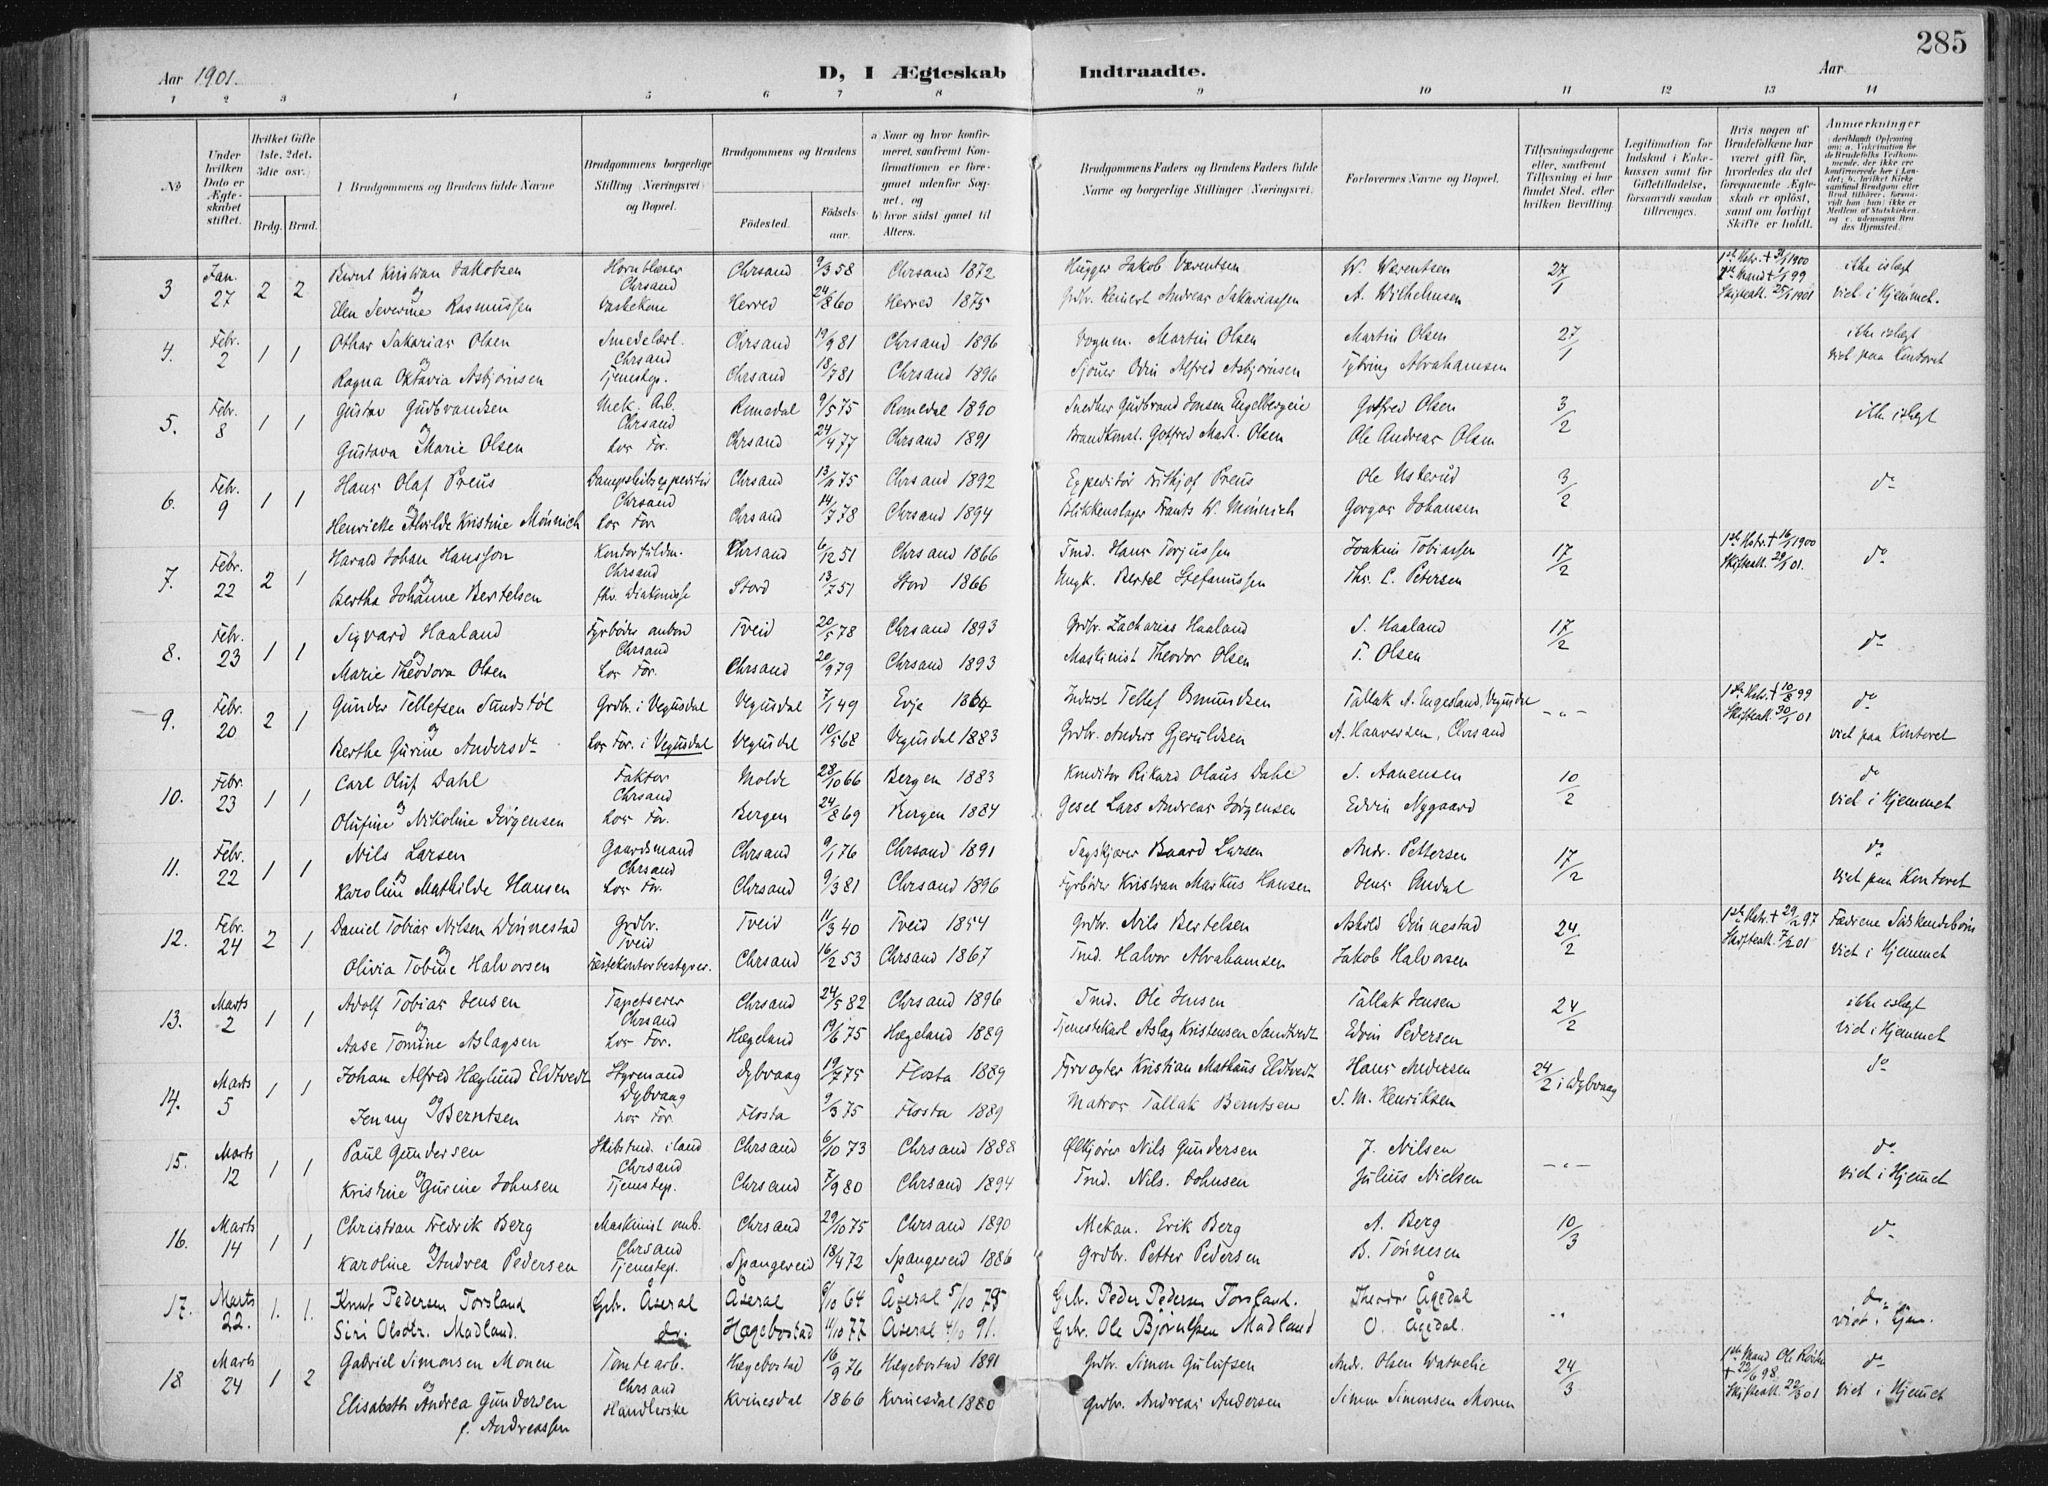 285
Aar 1901.
D, I Ægteskab Indtraadte.
Aar
1 2 3 4 5 6 7 8 9 10 11 12 13 14
№
Under hvilken Dato er Ægteskabet stiftet.
Hvilket Gifte 1ste, 2det, 3die osv.)
Brdg. Brud.
1 Brudgommens og Brudens fulde Navne
Brudgommens borgerlige Stilling (Næringsvei) og Bopæl.
Brudgommens og Brudens
Fødested. Fødselsaar.
a Naar og hvor konfirmeret, saafremt Konfirmationen er foregaaet udenfor Sognet, og
b hvor sidst gaaet til Alters.
Brudgommens Faders og Brudens Faders fulde Navne og borgerlige Stillinger (Næringsvei).
Forlovernes Navne og Bopæl.
Tillysningsdagene eller, saafremt Tillysning ei har fundet Sted, efter hvilken Bevilling.
Legitimation for Indskud i Enkekassen samt for Giftetilladelse, forsaavidt saadan tiltrænges.
Hvis nogen af Brudefolkene har været gift før, hvorledes da det foregaaende Ægteskab er opløst, samt om lovligt Skifte er holdt.
Anmærkninger
3 Jan. 27 2 2 Bernt Kristian Jakobsen Hornblæser Chrsand Chrsand 9/3 58 Chrsand 1872 Hugger Jakob Værentsen W. Wærentsen 27/1 1ste Hstr. + 3/1 1900 ikke islægt
og Elen Severine Rasmussen Vaskekone Herred 24/8 60 Herred 1875 Grdbr. Reinert Andreas Sakariassen A. Wilhelmsen 2de Mand + 1/1 99 Skifteatt. 25/1 1901 viet i Hjemmet.
4. Febr. 2 1 1 Othar Sakarias Olsen Smedelærl. Chrsand Chrsand 19/9 81 Chrsand 1896 Vognm. Martin Olsen Martin Olsen 27/1 ikke islægt
og Ragna Oktavia Asbjørnsen Tjenestep. Chrsand 18/7 81 Chrsand 1896 Sjouer Odin Alfred Asbjørnsen Tybring Abrahamsen viet paa Kontoret
5. Febr. 8 1 1 Gustav Gudbrandsen Mek. Arb. Chrsand Romedal 9/5 75 Romedal 1890 Snedker Gudbrand Jensen Engelbergeie Gotfred Olsen 3/2 ikke islægt
og Gustava Marie Olsen hos For. Chrsand 24/4 77 Chrsand 1891 Brandkonst. Gotfred Mart. Olsen Ole Andreas Olsen
6. Febr. 9 1 1 Hans Olaf Preus Dampskibsexpeditør Chrsand Chrsand 13/11 75 Chrsand 1892 Expeditør Frithjof Preus Ole Usterud 3/2 do
og Henriette Alvilde Kristine Mønnich hos For. Chrsand 14/7 78 Chrsand 1894 Blikkenslager Frants W. Mønnich Gorgas Johansen
7. Febr. 22 2 1 Harald Johan Hansson Kontorfuldm. Chrsand Chrsand 6/12 51 Chrsand 1866 Tmd. Hans Torjussen Joakim Tobiassen 17/2 1ste Hstr. + 16/1 1900 Skifteatt. 29/1 01. do
og Bertha Johanne Bertelsen fhv. Diakonisse Stord 13/7 51 Stord 1866 Ungk. Bertel Stefanussen Ths. C. Petersen
8. Febr. 23 1 1 Sigvard Haaland Fyrbøder ombord Chrsand Tveid 20/5 78 Chrsand 1893 Grdbr. Zacharias Haaland S. Haaland 17/2 do
og Marie Theodora Olsen hos For. Chrsand 20/9 79 Chrsand 1893 Maskinist Theodor Olsen T. Olsen
9. Febr. 20 2 1 Gunder Tellefsen Sundstøl Grdbr. i Vegusdal Vegusdal 7/1 49 Evje 1864 Inderst Tellef Omundsen Tallak A. Engesland, Vegusdal – „ – 1ste Hstr. + 10/8 99 Skifteatt. 30/1 01 do
og Berthe Gurine Andersdr hos For. i Vegusdal Vegusdal 10/5 68 Vegusdal 1883 Grdbr. Anders Gjeruldsen A. Haaversen, Chrsand viet paa Kontoret
10. Febr. 23 1 1 Carl Oluf Dahl Faktor Chrsand Molde 28/10 66 Bergen 1883 Konditor Rikard Olaus Dahl S. Aanensen 10/2 do
og Olufine Nikoline Jørgensen hos For. Bergen 24/8 69 Bergen 1884 Gesel Lars Andreas Jørgensen Edvin Nygaard viet i Hjemmet
11. Febr. 22 1 1 Nils Larsen Gaardsmand Chrsand Chrsand 9/1 76 Chrsand 1891 Baard Larsen Andr. Pettersen 17/2 do
og Karoline Mathilde Hansen hos For. Chrsand 9/3 81 Chrsand 1896 Fyrbøder Kristian Markus Hansen Jens viet paa Kontoret
12. Febr. 24 2 1 Daniel Tobias Nilsen Dønnestad Grdbr. Tveid Tveid 11/3 40 Tveid 1854 Grdbr. Nils Bertelsen Askild Dønnestad 24/2 1ste Hstr. + 29/2 97 Skifteatt. 7/2 01 Fædrene Sødskendebørn
og Olivia Tobine Halvorsen Fæstekontorbestyrer. Chrsand 16/2 53 Chrsand 1867 Tmd. Halvor Abrahamsen Jakob Halvorsen viet i Hjemmet
13. Marts 2 1 1 Adolf Tobias Jensen Tapetserer Chrsand Chrsand 24/5 82 Chrsand 1896 Tmd. Ole Jensen Tallak Jensen 24/2 ikke islægt
og Aase Tomine Aslagsen hos For. Hægeland 19/6 75 Hægeland 1889 Tjenestekarl Aslag Kristensen Sandtvedt Edvin Pedersen viet i Hjemmet
14. Marts 5 1 1 Johan Alfred Hæglund Eldtvedt Styrmand Dybvaag Dybvaag 19/7 75 Flosta 1889 Fyrvogter Kristian Mathæus Eldtvedt Hans Andersen 24/2 i Dybvaag do
og Jenny Berntsen hos For. Flosta 9/3 75 Flosta 1889 Matros Tallak Berntsen S. M. Henriksen
15. Marts 12 1 1 Paul Gundersen Skibstmd. iland Chrsand Chrsand 6/10 73 Chrsand 1888 Ølkjører Nils Gundersen J. Nilsen – „ – do
og Kristine Gurine Johnsen Tjenestep. Chrsand 7/9 80 Chrsand 1894 Tmd. Nils Johnsen Julius Nielsen viet i Hjemmet
16. Marts 14 1 1 Christian Fredrik Berg Maskinist omb. Chrsand Chrsand 29/10 75 Chrsand 1890 Mekan. Erik Berg A. Berg 10/3 do
og Karoline Andrea Pedersen Tjenestep. Spangereid 18/4 72 Spangereid 1886 Grdbr. Petter Pedersen B. Tønnesen
17. Marts 22. 1. 1. Knut Pedersen Torsland Grbr. Åseral Åseral 6/10 64 Åseral 5/10 79 Grbr. Peder Pedersen Torsland. Theodor Ågedal „ do.
Siri Olsdtr. Madland. do. Hægebostad 11/10 77 Åseral 4/10 91. Grbr. Ole Bjørulfsen Madland O. Ågedal. viet i Hjem.
18 Marts 24 1 2 Gabriel Simonsen Monen Tomtearb. Chrsand Hægebostad 16/9 76 Hægebostad 1891 Grdbr. Simon Gulufsen Andr. Olsen Watnelie 24/3 1ste Mand Ole + 22/6 98. Skifteatt. 22/3 01 do
og Elisabeth Andrea Gundersen f. Andreassen Handlerske Kvinesdal 1866 Kvinesdal 1880 Grdbr. Andreas Andersen Simon Simonsen Monen viet i Hjemmet